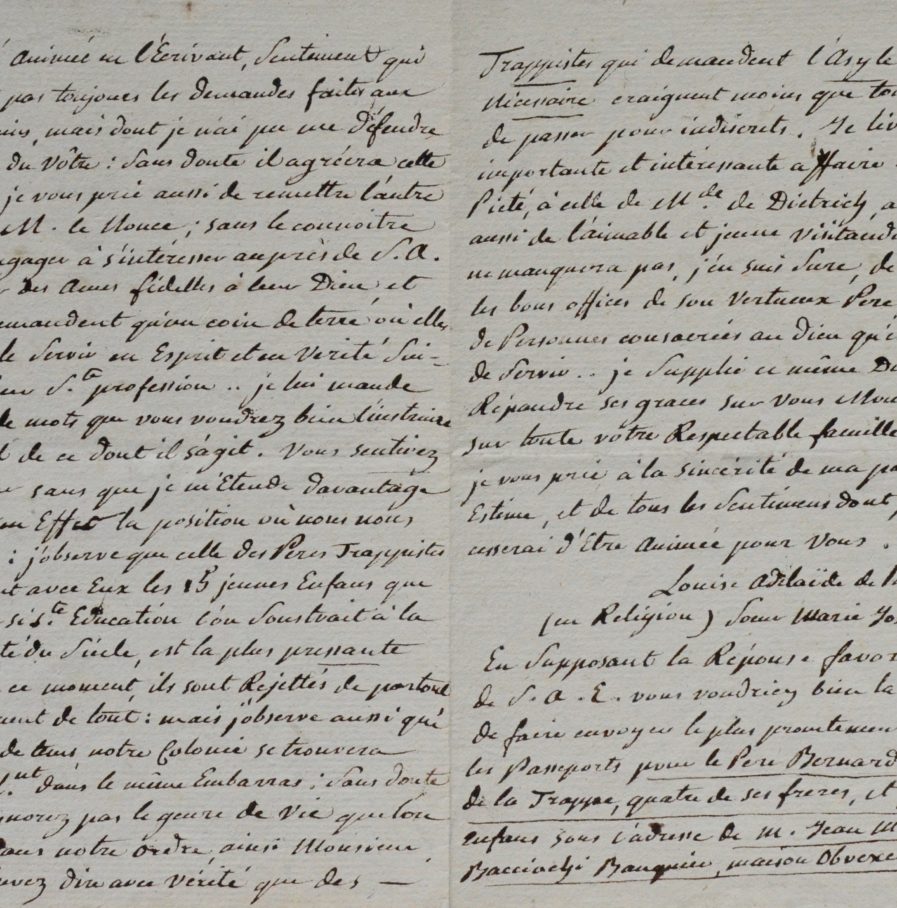 animée en l'Ecrivant, Sentiment qui
pas toujours les demandes faites aux
mais dont je n'ai pu me défendre
du vôtre : Sans doute il agréera cette
je vous prie aussi de remettre l'autre
M. le Nonce ; sans le connoitre
engager à s'intéresser auprès de S. A.
des Ames fidelles à leur Dieu, et
demandent qu'un coin de terre où elles
le Servir en Esprit et en Verité Sui-
leur Ste profession .. je lui mande
de mots que vous voudrez bien l'instruire
de ce dont il s'agit. Vous sentirez
sans que je m'Etende davantage
en Effet la position où nous nous
: j'observe que celle des Peres Trappistes
avec Eux les 15 jeunes Enfans que
si Ste Education l'on Soustrait à la
du Siécle, est la plus pressante
ce moment, ils sont Rejettés de partout
de tout : mais j'observe aussi qu'
de tems notre Colonie se trouvera
dans le même Embarras ; Sans doute
pas le genre de Vie que l'on
dans notre ordre, ainsi Monsieur
dire avec vérité que des —
Trappistes qui demandent l'Asyle
Nécessaire craignent moins que
de passer pour indiscrets. Je
importante et intéressante affaire
Piété, à celle de Mde de Dietrich,
aussi de l'aimable et jeune
ne manquera pas, j'en suis sure, de
les bons offices de son Vertueux Pere
de Personnes consacrées au Dieu
de Servir .. je Supplie ce même
Répandre ses graces sur vous
sur toute votre Respectable famille
je vous prie à la sincérité de ma
Estime, et de tous les Sentimens dont
cesserai d'Etre animée pour vous.
Louise Adélaïde de
(en Religion) Soeur Marie
En Supposant la Réponse
de S. A. E. vous voudriez bien la
de faire envoyer le plus promtement
les Passeports pour le Pere Bernard
de la Trappe, quatre de ses freres, et
enfans sous l'adresse de M. Jean
Bacciochi Banquier, maison